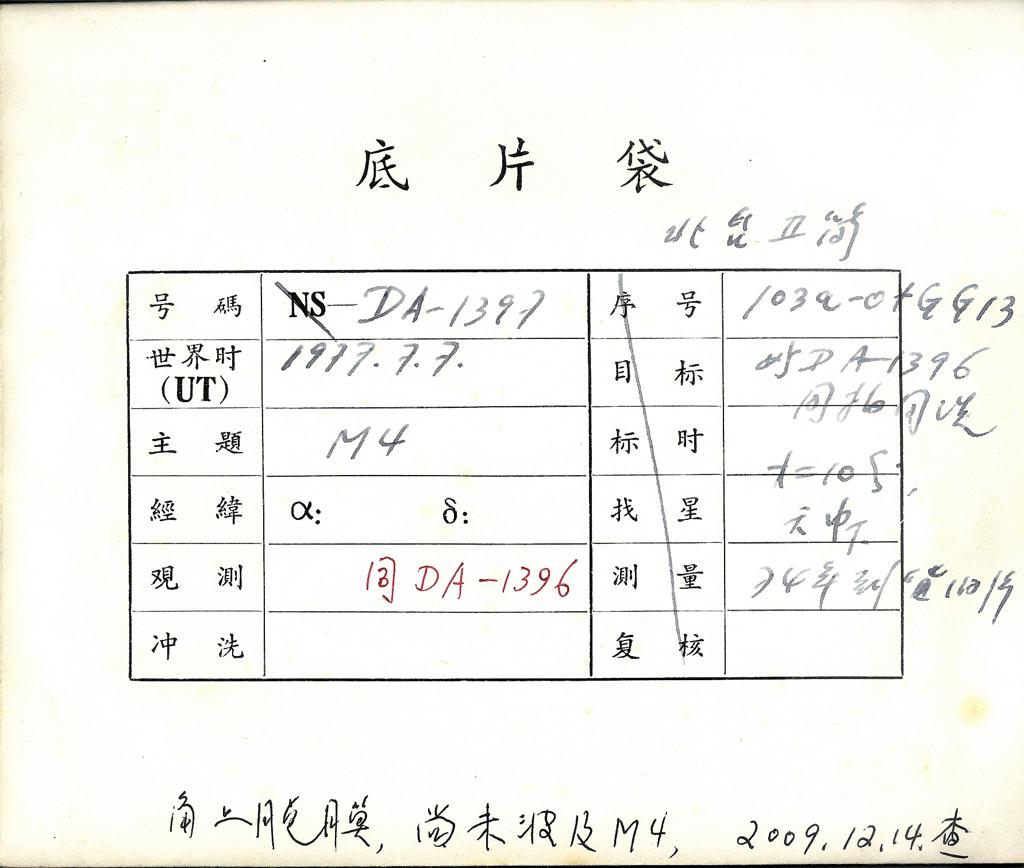 底片袋
北昆 II 筒
号碼 NS—DA-1397 序号 103a-O+GG13
世界时 (UT) 1977.7.7. 目标 与DA-1396
同拍同洗
主題 M4 标时
t=10
經緯 α: δ: 找星
观測 同 DA-1396 測量 74年到
冲洗 复核
角上脱膜, 尚未波及M4, 2009.12.14.查